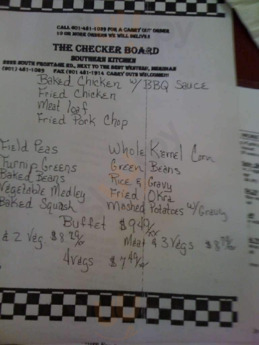 CALL 601-481-1089 FOR A CARRY OUT ORDER
10 OR MORE ORDERS WE WILL DELIVER
THE CHECKER BOARD
SOUTHERN KITCHEN
SOUTH FRONTAGE RD., NEXT TO THE BEST WESTERN, MERIDIAN
(601) 481-1089 FAX (601) 481-1914 CARRY OUTS WELCOMED!!
Baked Chicken w/ BBQ Sauce
Fried Chicken
Meat loaf
Fried Pork Chop
Field Peas Whole Kernel Corn
Turnip Greens Green Beans
Baked Beans Rice & Gravy
Vegetable Medley Fried Okra
Baked Squash Mashed Potatoes w/ Gravy
Buffet $9
& 2 Veg $8 Meat & 3 Vegs $8
4 Vegs $7